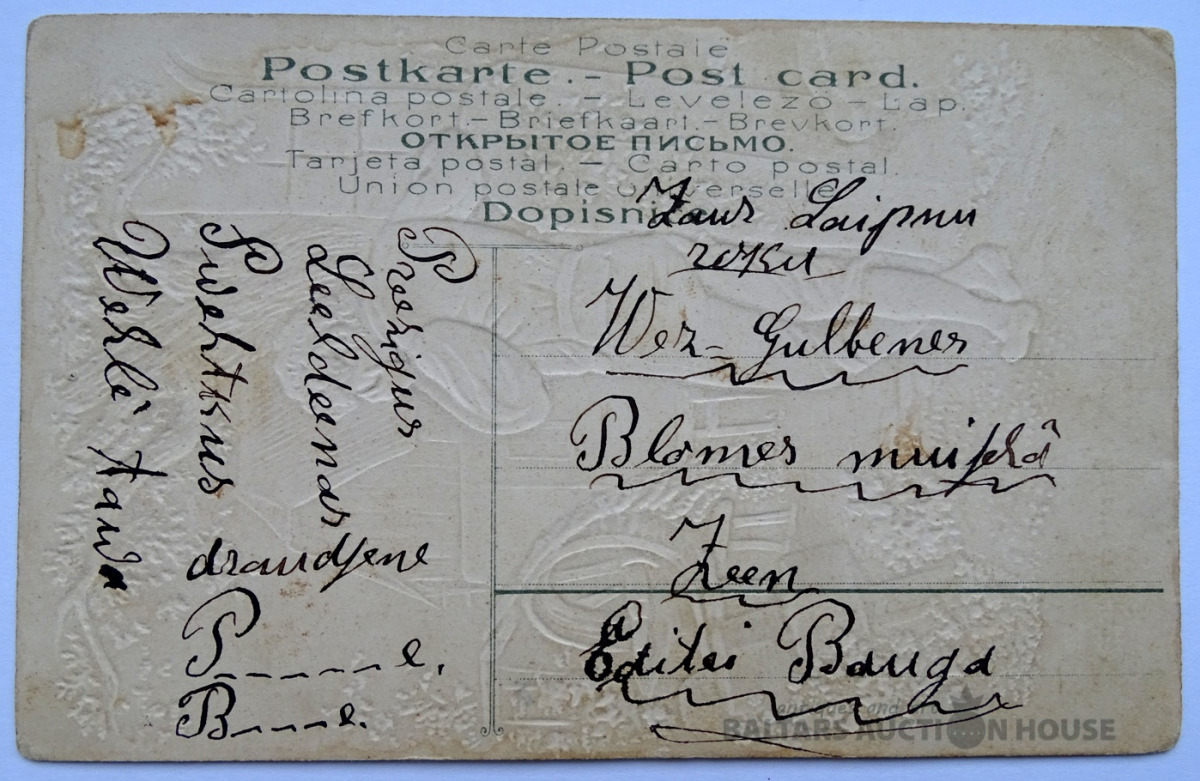 Carte Postale
Postkarte. - Post card.
Cartolina postale. - Levelezo - Lap.
Brefkort. - Briefkaart. - Brevkort.
ОТКРЫТОЕ ПИСЬМО.
Tarjeta postal. - Carto postal.
Union postale universelle
Dopisnica
Zaur Laipnu
roku
Wez-Gulbenes
Blomes muischâ
Zeen
Editei Bauga
Preezigus
Leeldeenas
Swehtkus
Wehlē tawa
draudsene
P-----e.
B----e.
BALTARS AUCTION HOUSE